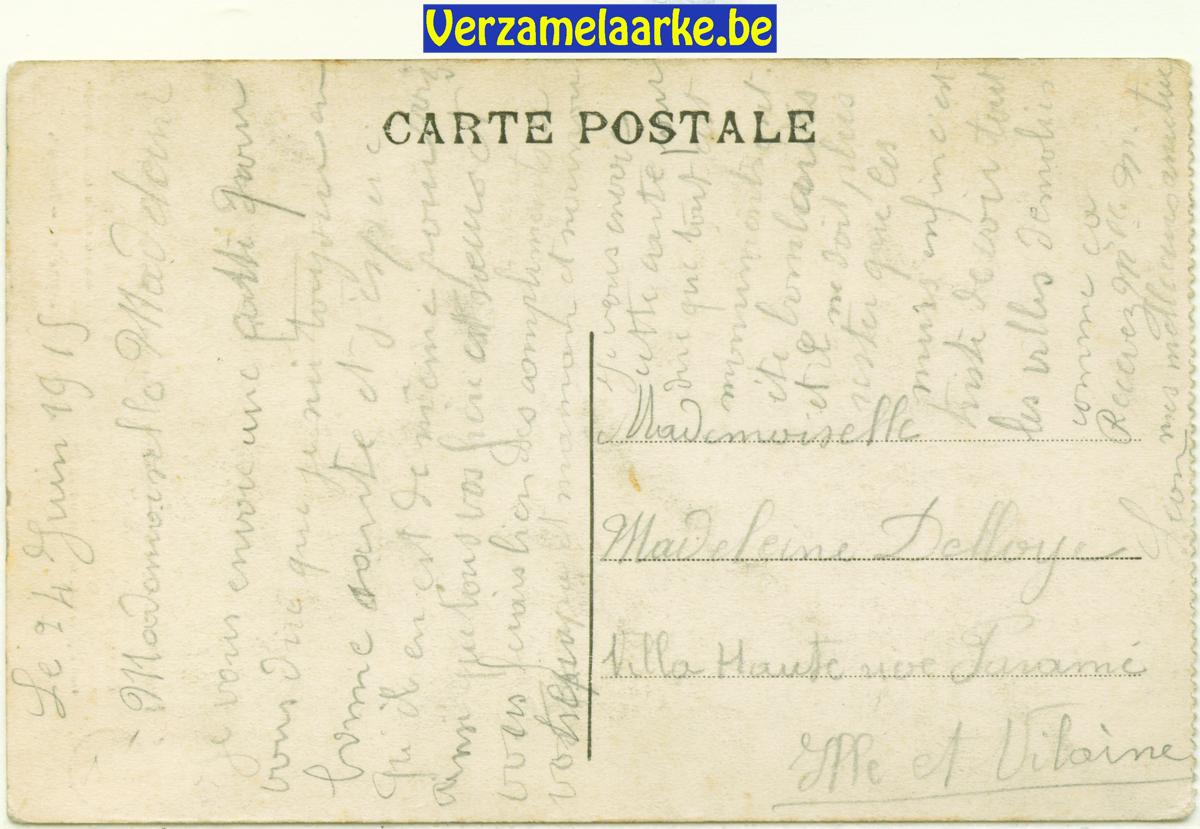 Verzamelaarke.be
CARTE POSTALE
Le 24 Juin 1915
Mademoiselle Madeleine
je vous envoie une carte pour
vous dire que je suis toujours en
bonne santé et j'espère
qu'il en est de même pour
ainsi que tous vos frère et soeur
vous ferais bien des compliments
votre papa et maman
je vous envoie
cette carte pour
dire que tout
monument
été bombardés
et il ne doit plus
rester que les
murs enfin c'est
triste de voir tout
les villes demolis
comme ça
Recevez
mes meilleurs
Mademoiselle
Madeleine Delloye
Villa Haute rive Paramé
Ille et Vilaine